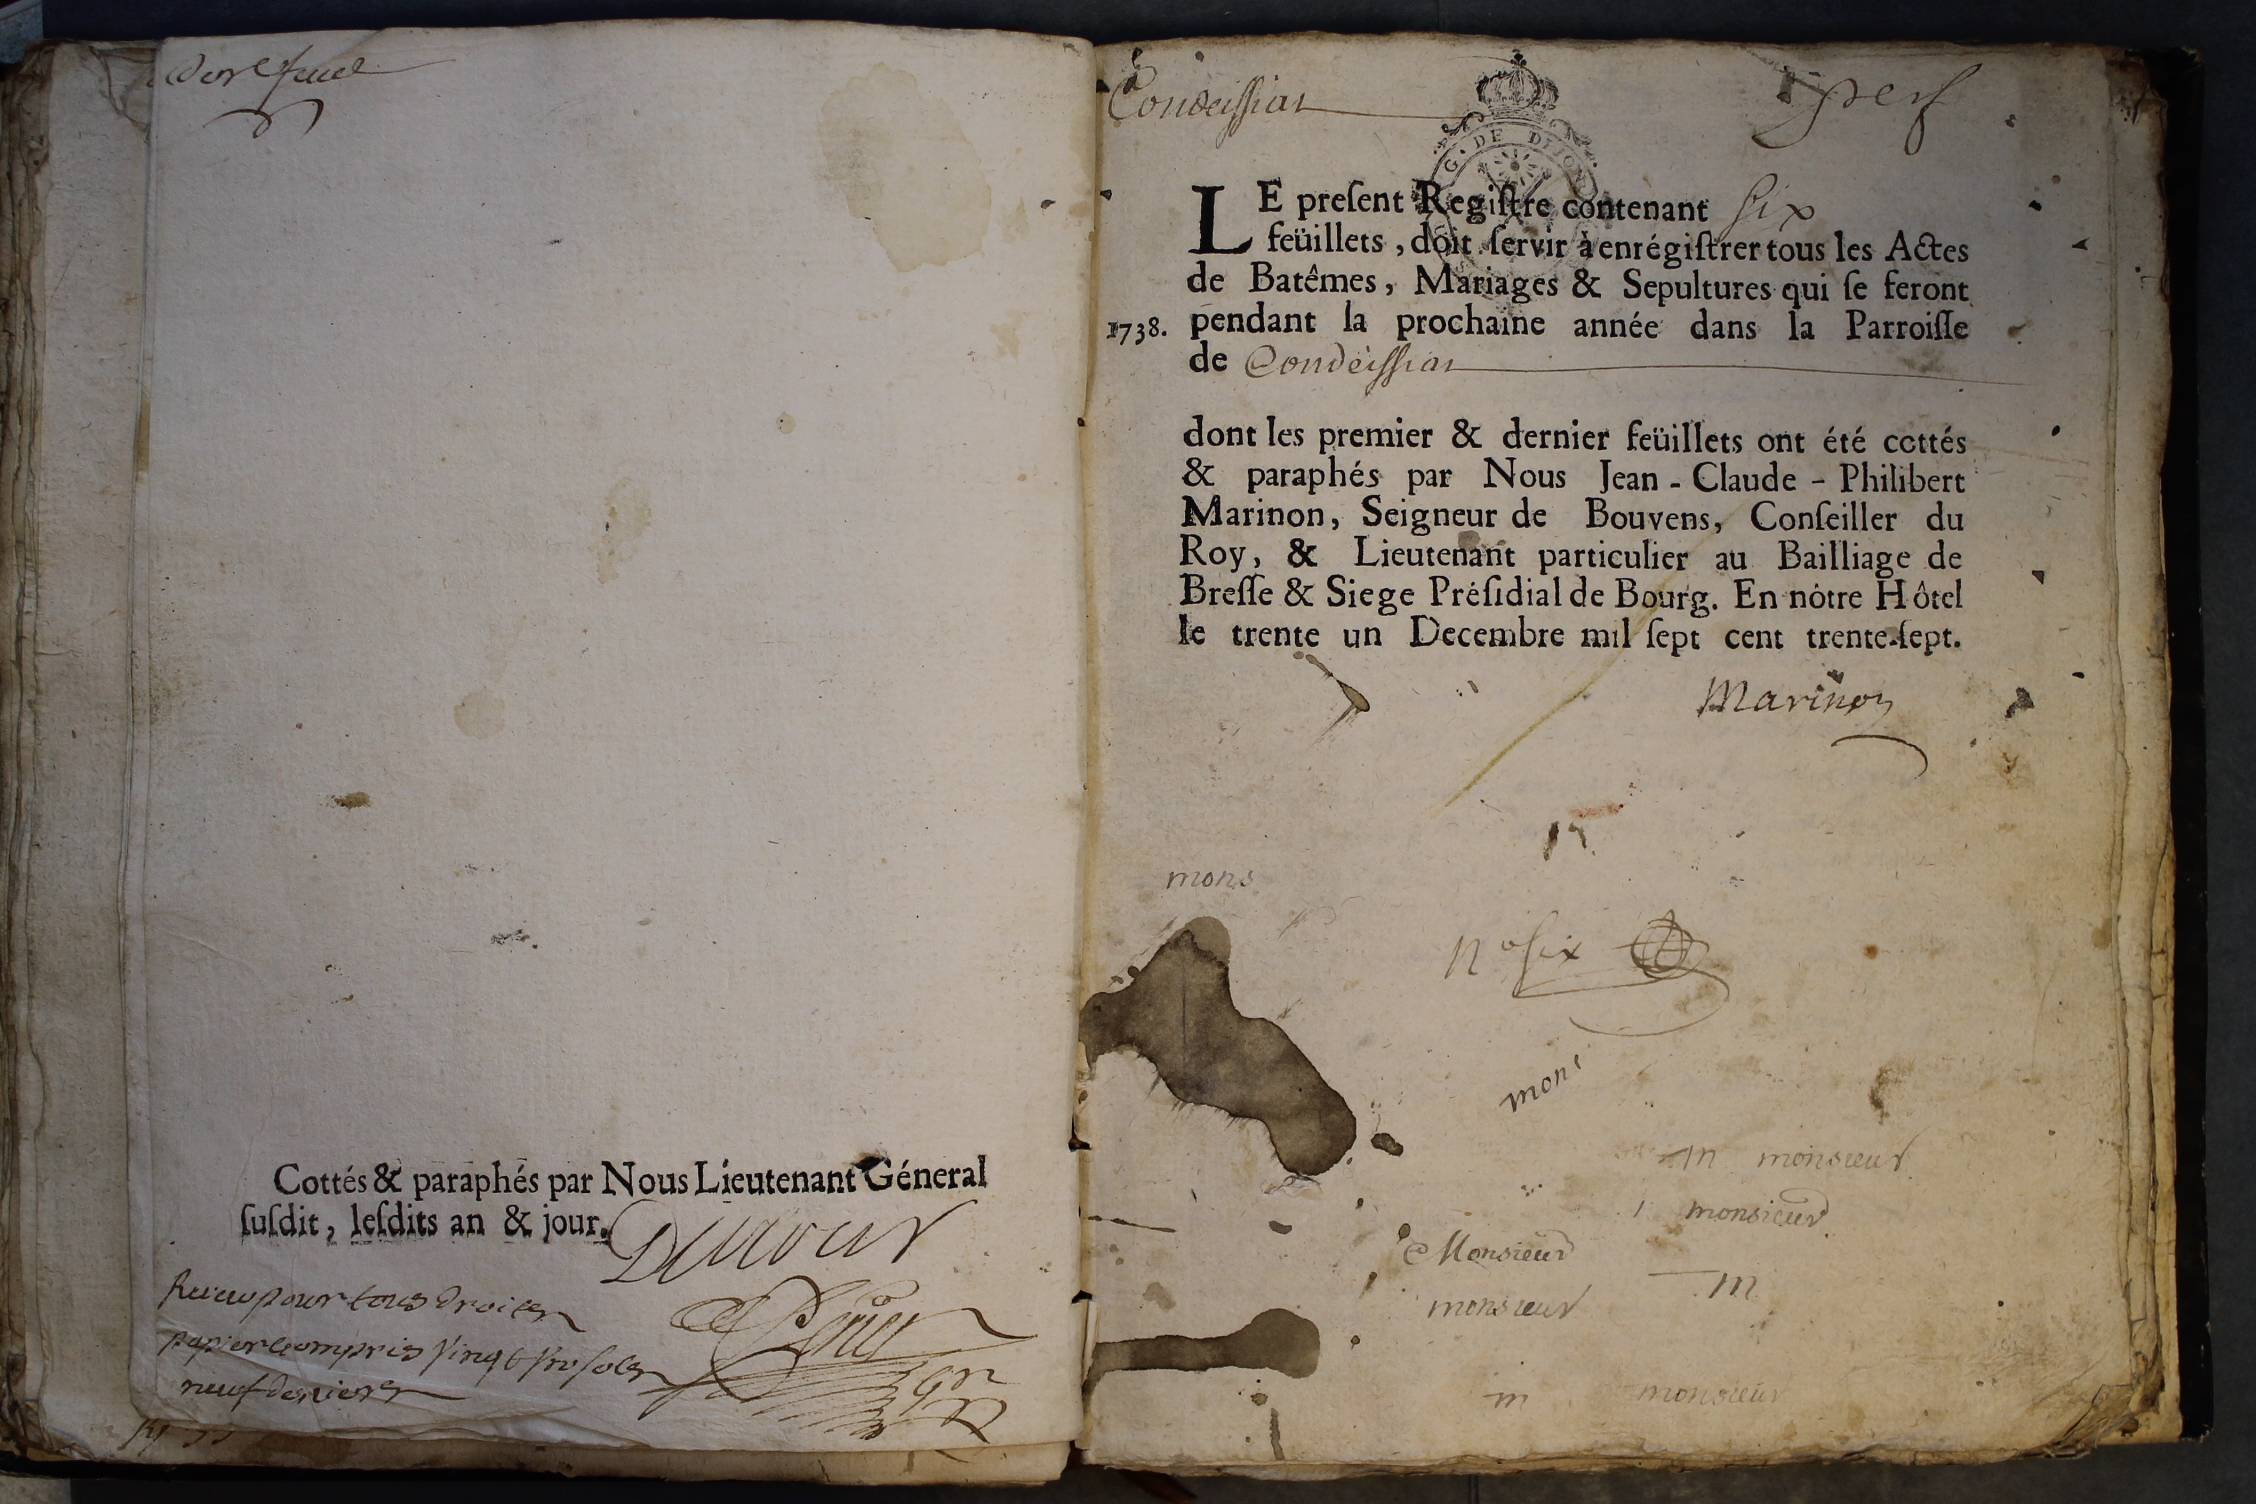 Cottés & paraphés par Nous Lieutenant Géneral
ſuſdit, leſdits an & jour.
Receu pour tous droits
papier compris vingt trois sols
neuf deniers
Condeissiat
G. DE DIJON
LE preſent Regiſtre contenant six
feüillets, doit ſervir à enrégiſtrer tous les Actes
de Batêmes, Mariages & Sepultures qui ſe feront
1738. pendant la prochaine année dans la Parroiſſe
de Condeissiat
dont les premier & dernier feüillets ont été cottés
& paraphés par Nous Jean-Claude-Philibert
Marinon, Seigneur de Bouvens, Conſeiller du
Roy, & Lieutenant particulier au Bailliage de
Breſſe & Siege Préſidial de Bourg. En nôtre Hôtel
le trente un Decembre mil ſept cent trente-ſept.
Marinon
mons
no six
mons
m monsieur
monsieur
Monsieur
m
monsieur
m monsieur